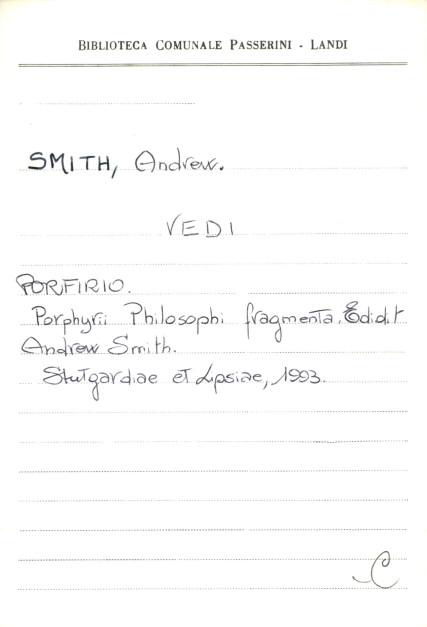 BIBLIOTECA COMUNALE PASSERINI - LANDI
SMITH, Andrew.
VEDI
PORFIRIO.
Porphyrii Philosophi fragmenta. Edidit
Andrew Smith.
Stutgardiae et Lipsiae, 1993.
C